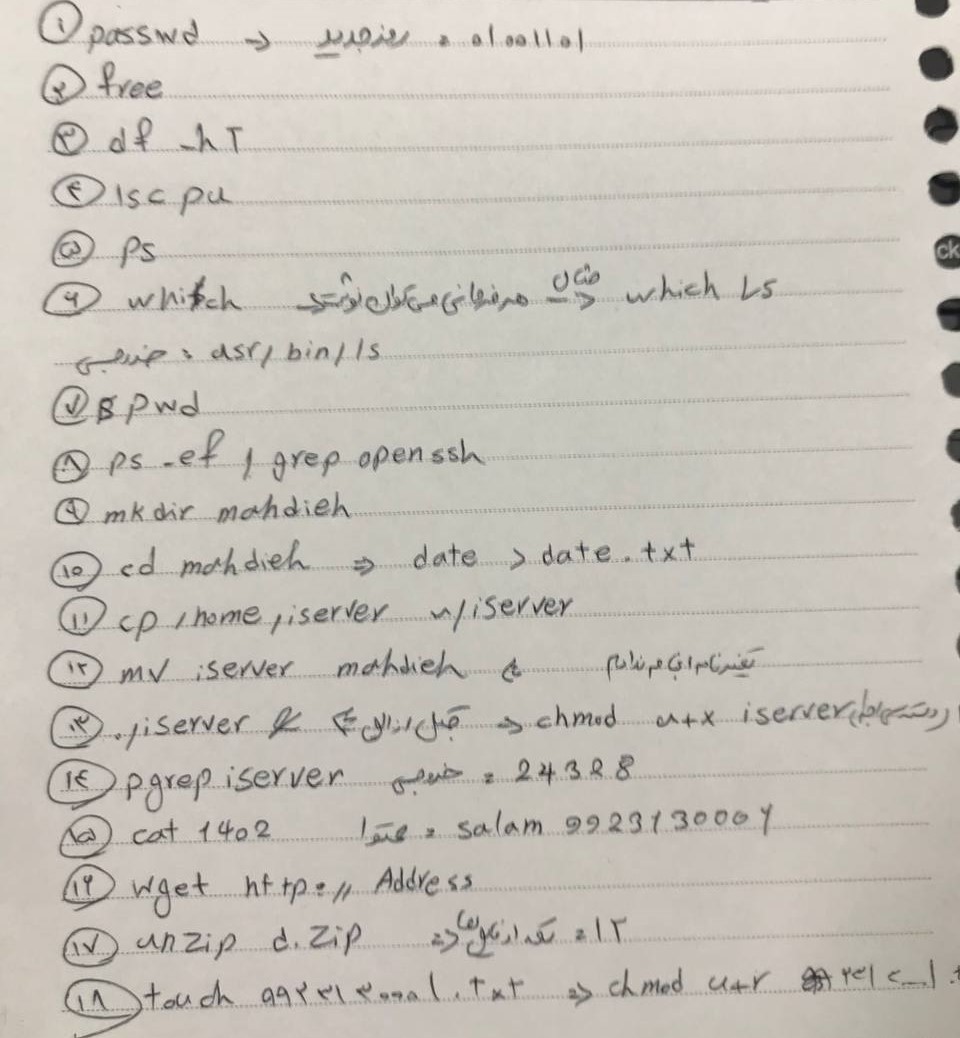 ① passwd → رمز جدید : 01001101
② free
③ df -hT
④ lscpu
⑤ ps
⑥ which هر فرمانی می‌توان نوشت مثال => which Ls
خروجی : usr/bin/ls
⑦ pwd
⑧ ps -ef | grep openssh
⑨ mkdir mahdieh
⑩ cd mahdieh ⇒ date > date.txt
⑪ cp /home/iserver ~/iserver
⑫ mv iserver mahdieh تغییر نام
⑬ ./iserver & قبل از ⇒ chmod u+x iserver
⑭ pgrep iserver خروجی = 24328
⑮ cat 1402 محتوا = salam
⑯ wget http:// Address
⑰ unzip d.zip ⇒ تعداد = ۱۲
⑱ touch ۹۹۲۳۱۳۰۰۰۱.txt ⇒ chmod u+r
ck